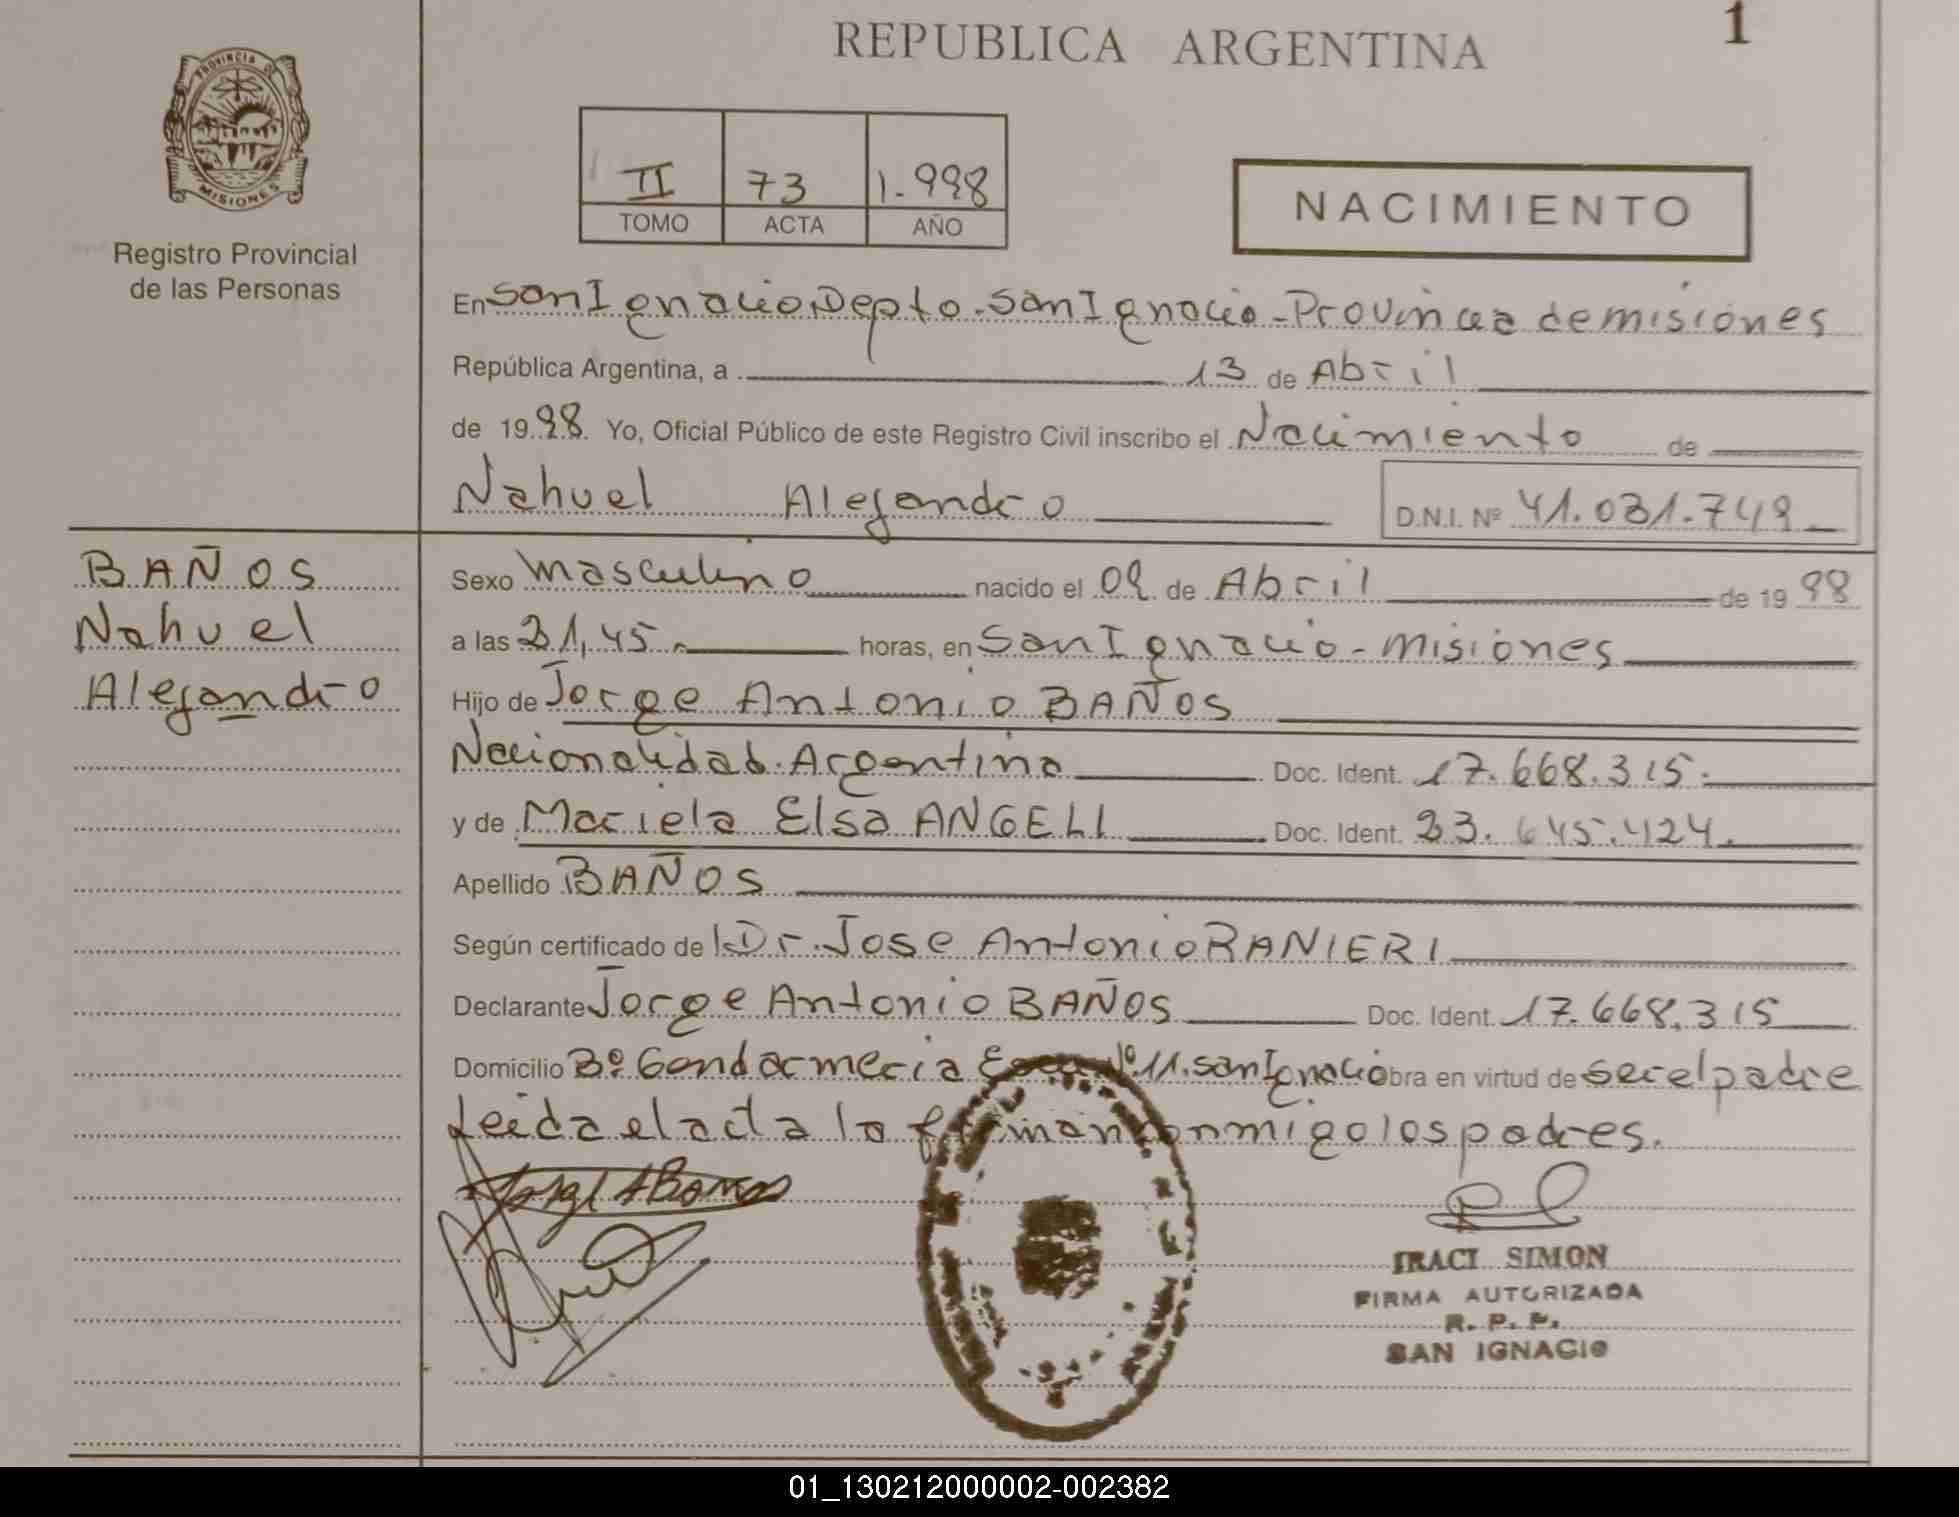 REPUBLICA ARGENTINA
1
PROVINCIA DE
MISIONES
Registro Provincial
de las Personas
II 73 1.998
TOMO ACTA AÑO
NACIMIENTO
En San Ignacio Depto. San Ignacio - Provincia de misiones
República Argentina, a 13 de Abril
de 1998. Yo, Oficial Público de este Registro Civil inscribo el Nacimiento de
Nahuel Alejandro D.N.I. Nº 41.031.749
BAÑOS
Nahuel
Alejandro
Sexo masculino nacido el 02 de Abril de 1998
a las 21,45 horas, en San Ignacio - misiones
Hijo de Jorge Antonio BAÑOS
Nacionalidad Argentina Doc. Ident. 17.668.315.
y de Mariela Elsa ANGELI Doc. Ident. 23.645.424.
Apellido BAÑOS
Según certificado del Dr. Jose Antonio RANIERI
Declarante Jorge Antonio BAÑOS Doc. Ident. 17.668.315
Domicilio Bº Gendarmeria Nº 11. San Ignacio obra en virtud de ser el padre
Leida el acta la firman conmigo los padres.
IRACI SIMON
FIRMA AUTORIZADA
R. P. P.
SAN IGNACIO
01_130212000002-002382